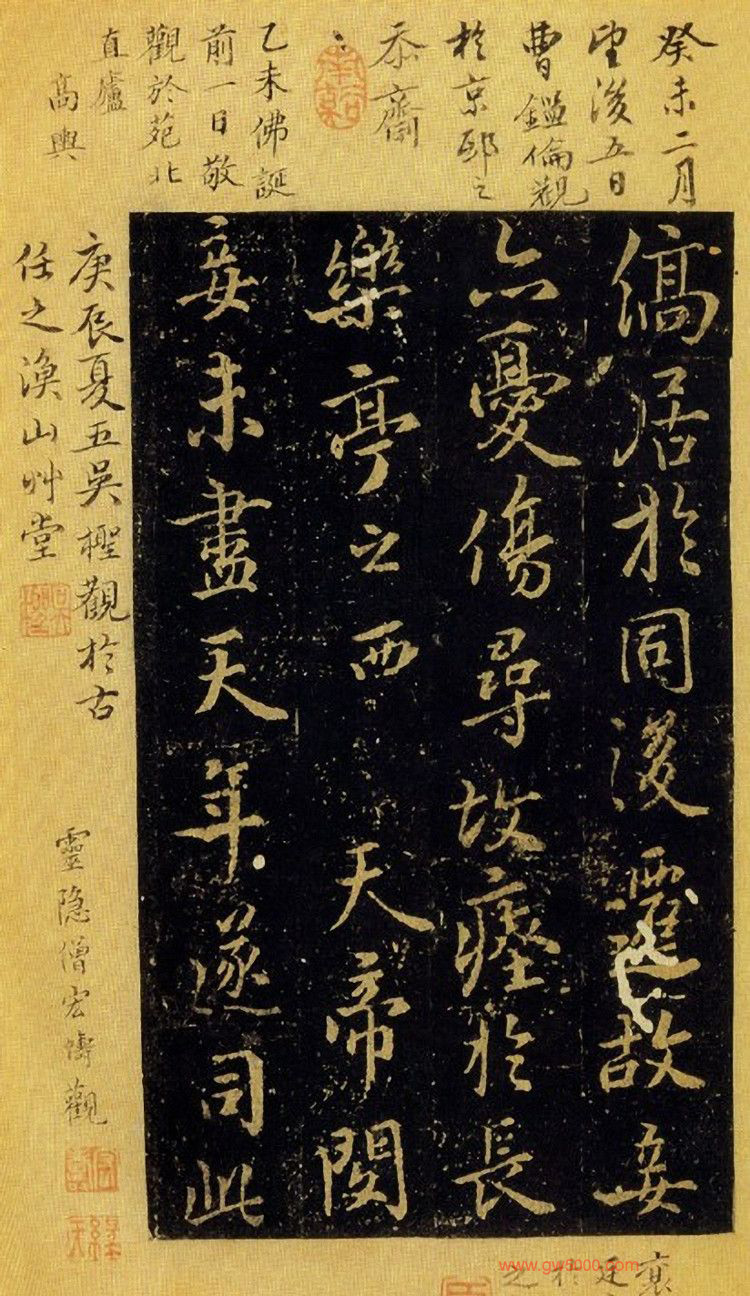 癸未二月
望後五日
曹鑑倫觀
於京邸之
忝齋
乙未佛誕
前一日敬
觀於苑北
直廬
高輿
縞居於同後遷故妾
亡憂傷尋故瘞於長
樂亭之西 天帝閔
妾未盡天年遂司此
庚辰夏五吳樫觀於古
任之渙山艸堂
靈隐僧宏濤觀
www.gw5000.com